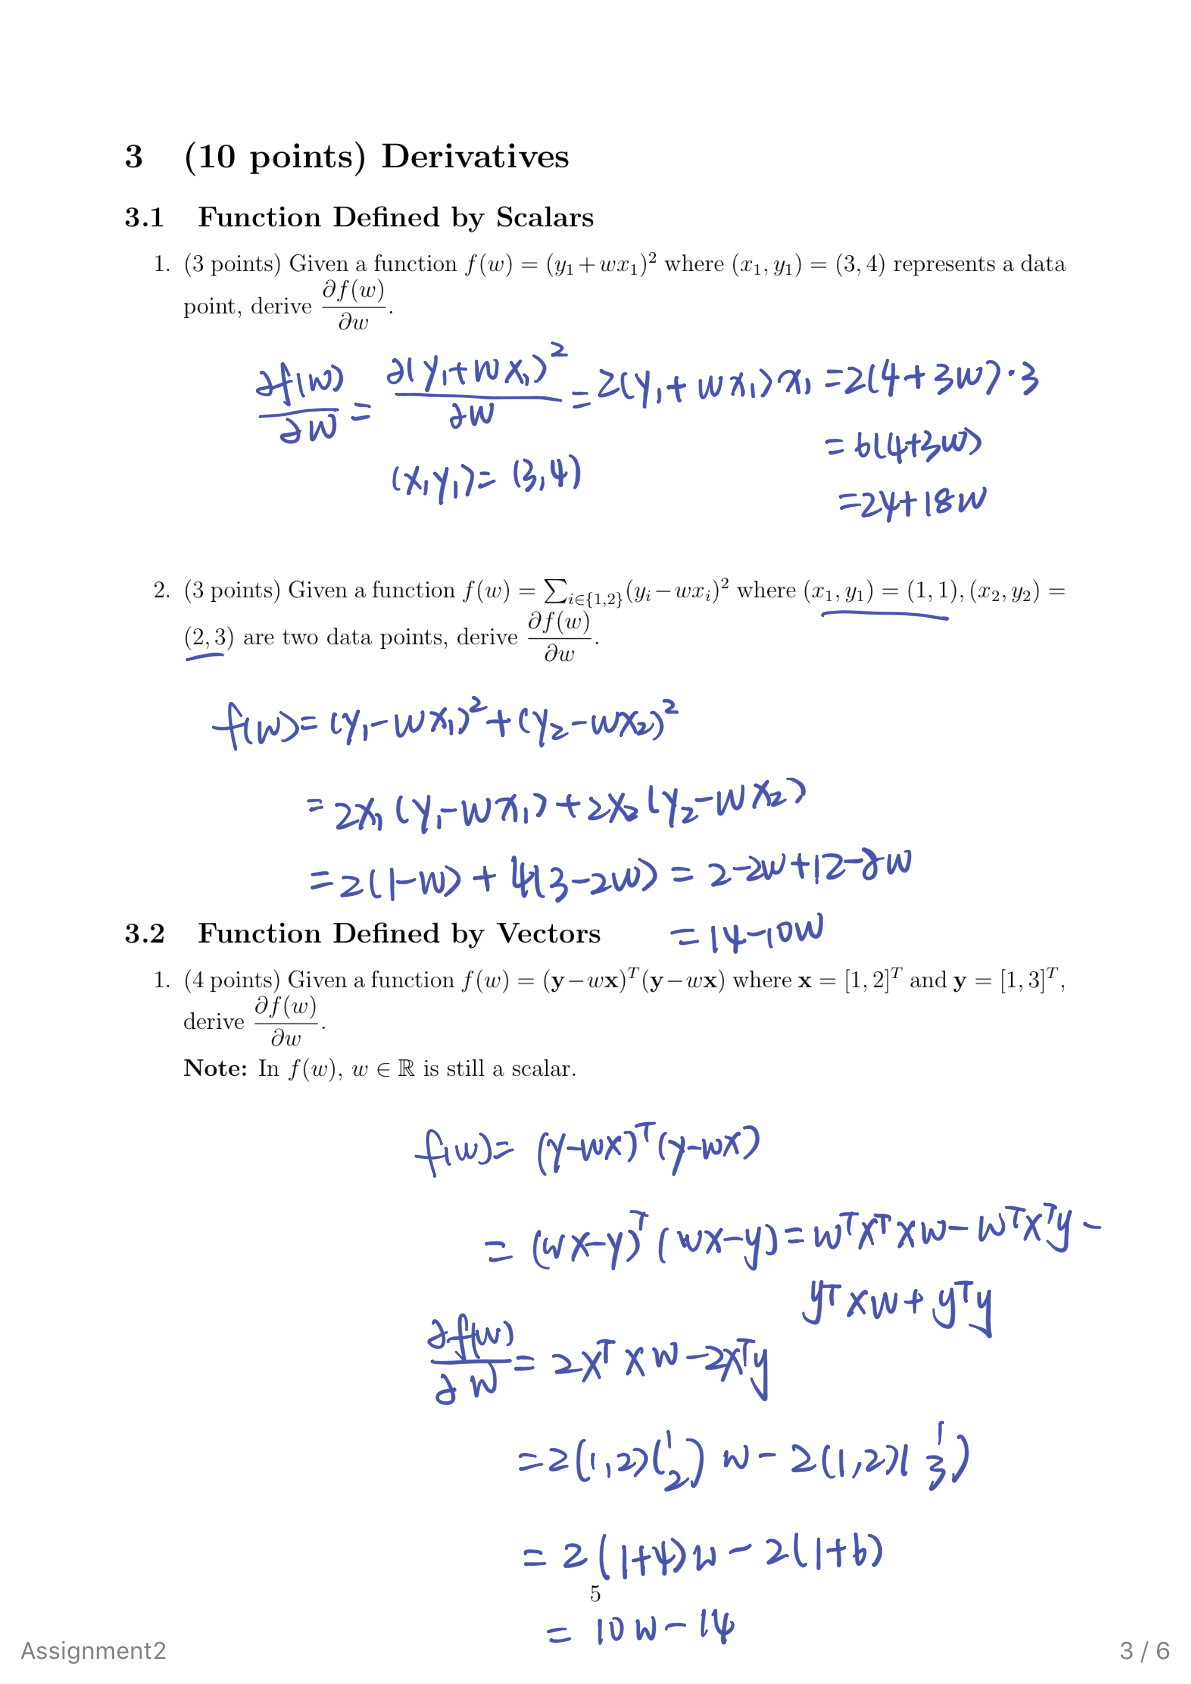 3 (10 points) Derivatives
3.1 Function Defined by Scalars
1. (3 points) Given a function f(w) = (y₁ + wx₁)² where (x₁, y₁) = (3, 4) represents a data
point, derive ∂f(w)/∂w.
∂f(w)/∂w = ∂(y₁+wx₁)²/∂w = 2(y₁+wx₁)x₁ = 2(4+3w)·3
= 6(4+3w)
(x₁y₁) = (3,4)
= 24+18w
2. (3 points) Given a function f(w) = ∑i∈{1,2}(yᵢ − wxᵢ)² where (x₁, y₁) = (1, 1), (x₂, y₂) =
(2, 3) are two data points, derive ∂f(w)/∂w.
f(w) = (y₁-wx₁)²+(y₂-wx₂)²
= 2x₁(y₁-wx₁)+2x₂(y₂-wx₂)
= 2(1-w)+4(3-2w) = 2-2w+12-8w
3.2 Function Defined by Vectors
= 14-10w
1. (4 points) Given a function f(w) = (y − wx)ᵀ(y − wx) where x = [1, 2]ᵀ and y = [1, 3]ᵀ,
derive ∂f(w)/∂w.
Note: In f(w), w ∈ ℝ is still a scalar.
f(w) = (y-wx)ᵀ(y-wx)
= (wx-y)ᵀ(wx-y) = wᵀxᵀxw - wᵀxᵀy -
yᵀxw + yᵀy
∂f(w)/∂w = 2xᵀxw - 2xᵀy
= 2(1,2)(1 2)w - 2(1,2)(1 3)
= 2(1+4)w - 2(1+6)
5
= 10w - 14
Assignment2
3 / 6